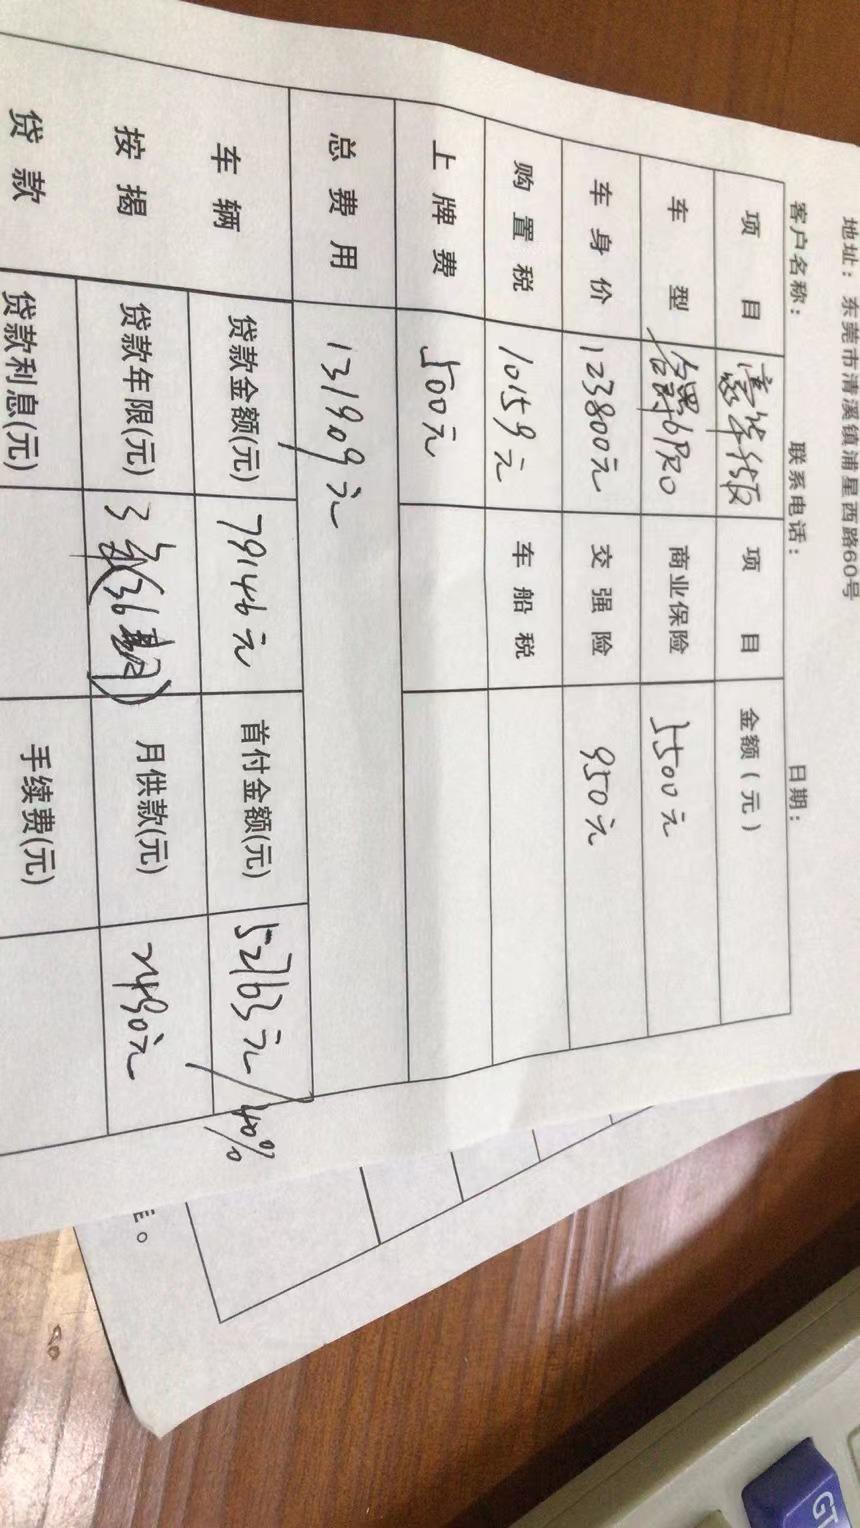 地址：东莞市清溪镇浦星西路60号
客户名称： 联系电话： 日期：
项目 豪华级 项目 金额（元）
车型 6PRO 商业保险 5500元
车身价 123800元 交强险 950元
购置税 10159元 车船税
上牌费 500元
总费用 131909元
车辆 贷款金额(元) 79146元 首付金额(元) 52763元/40%
按揭 贷款年限(元) 3年(36期) 月供款(元) 2490元
贷款 贷款利息(元) 手续费(元)
GT